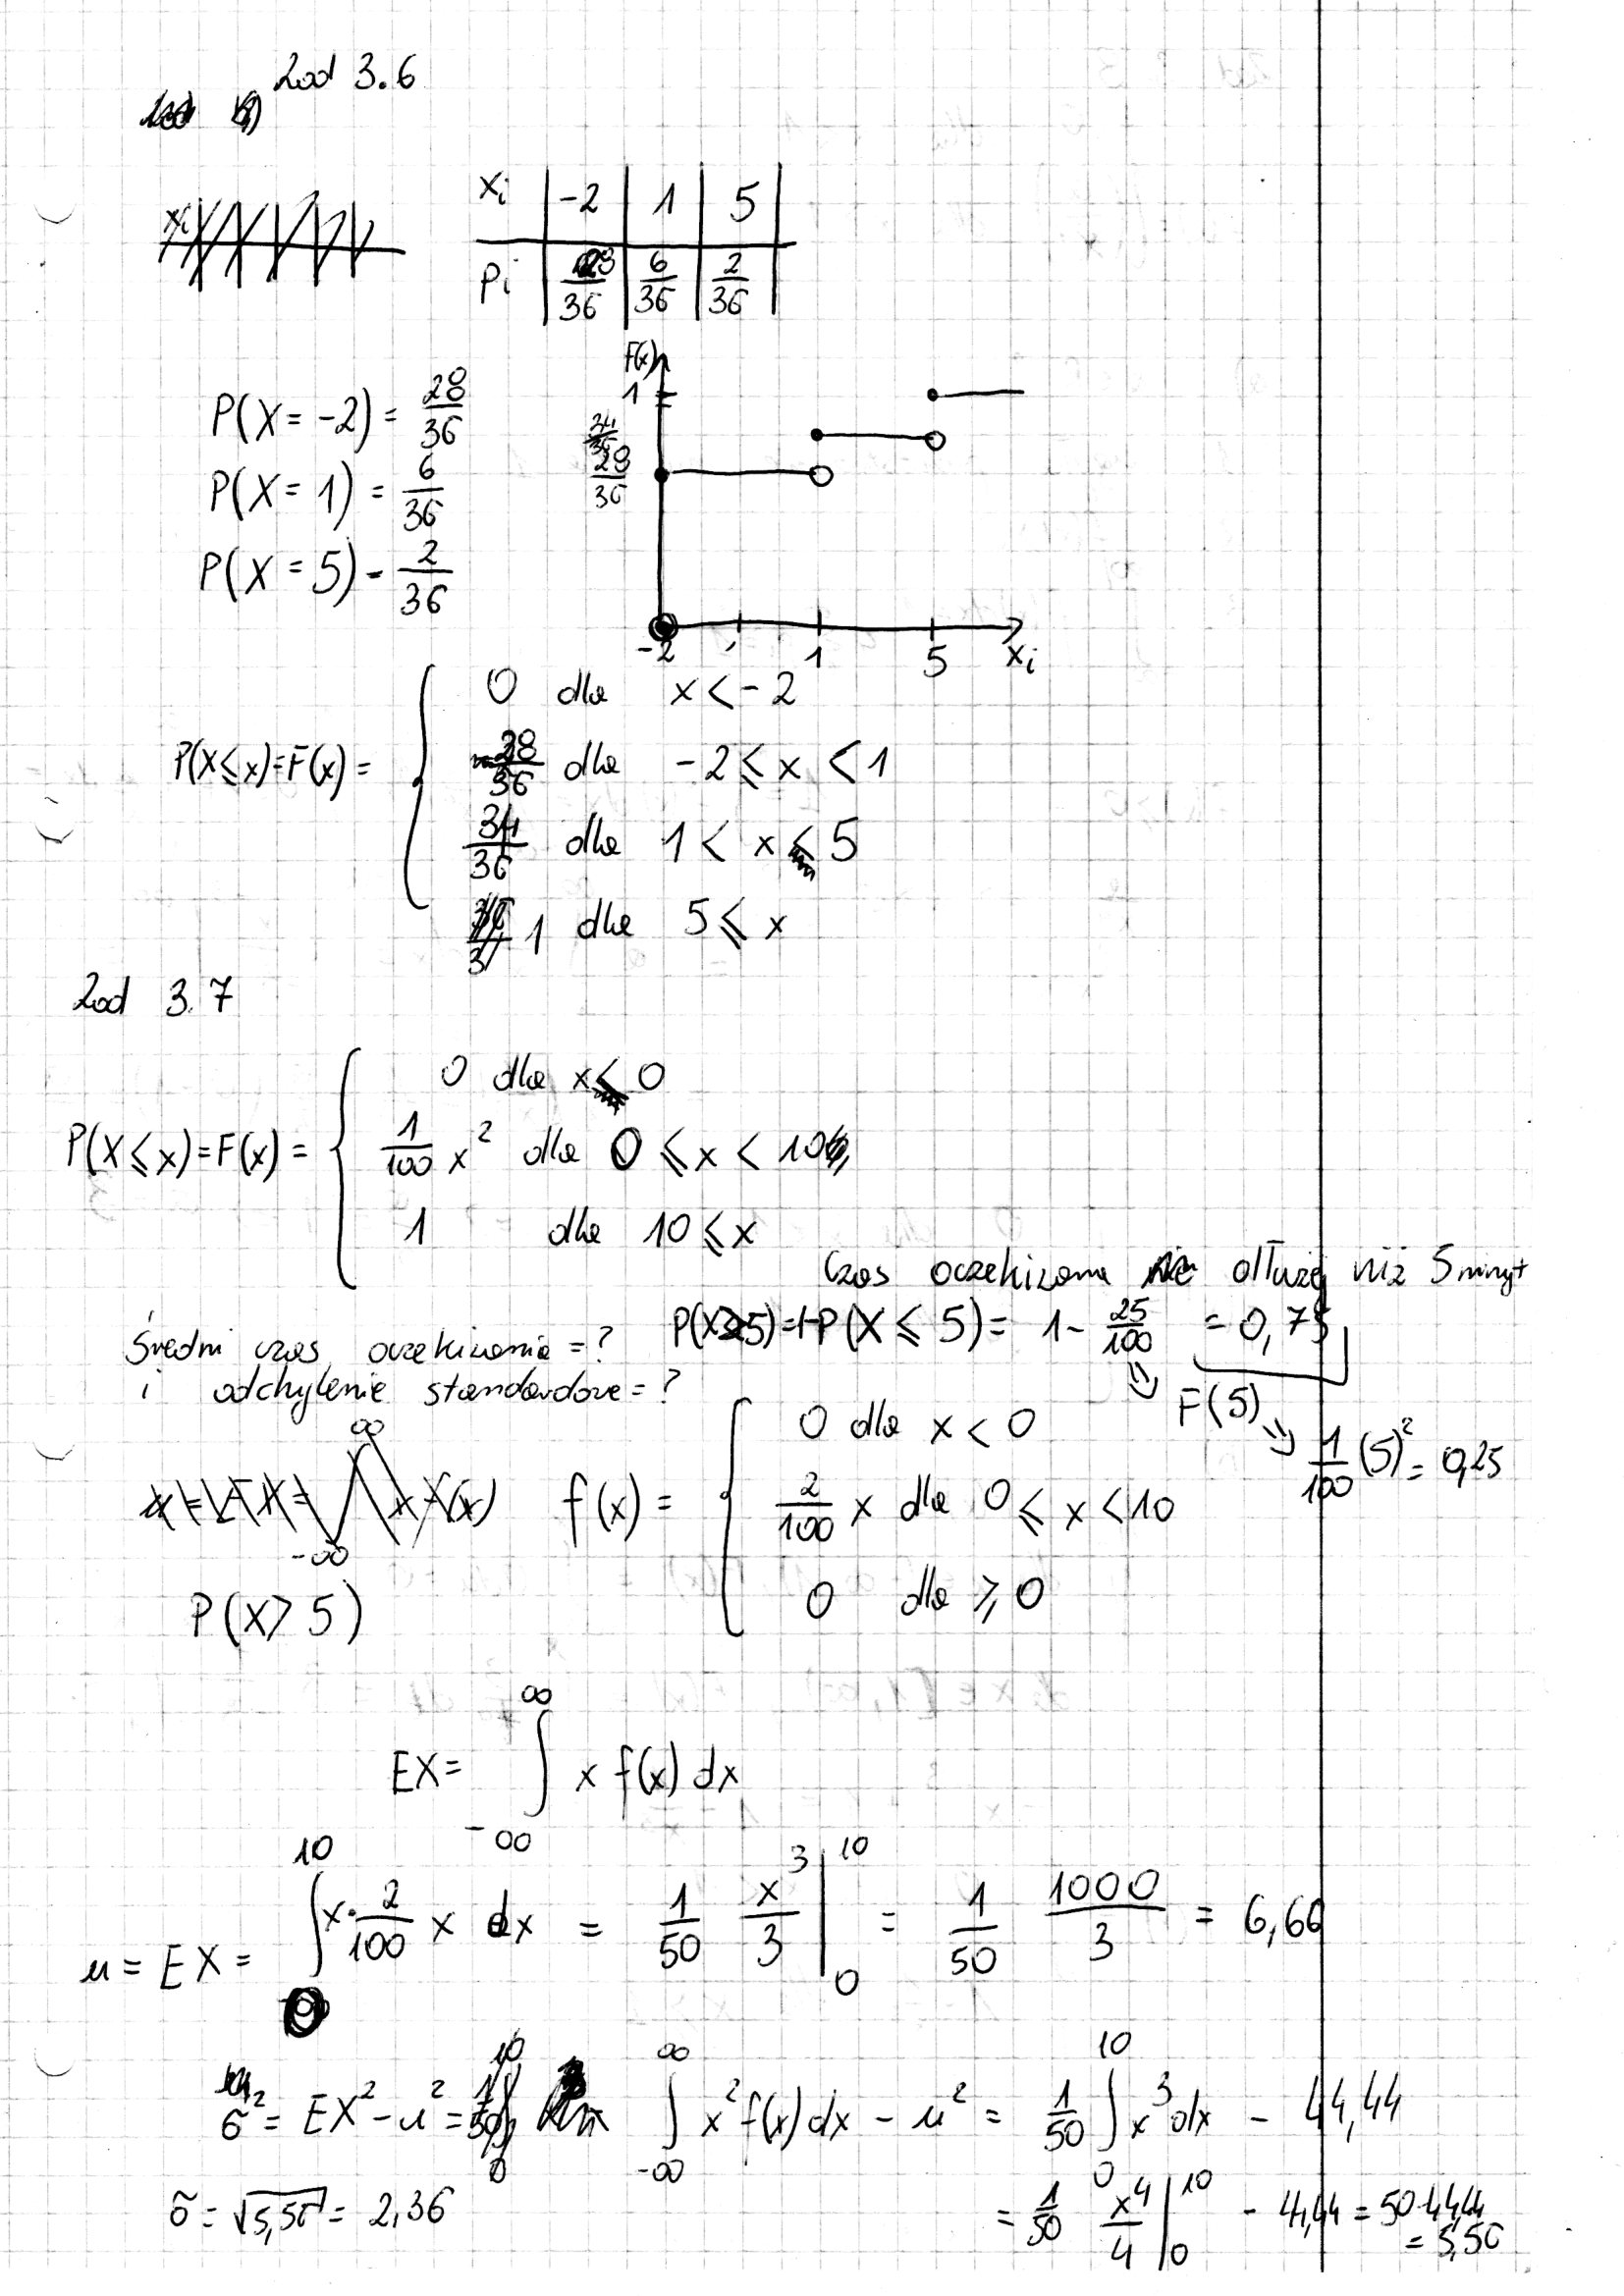 Zad 3.6
xi | -2 | 1 | 5
pi | 28/36 | 6/36 | 2/36
P(X = -2) = 28/36
P(X = 1) = 6/36
P(X = 5) - 2/36
F(x)
1
34/36
28/36
-2 1 5 xi
P(X ⩽ x) = F(x) = {
0 dla x < -2
28/36 dla -2 ⩽ x < 1
34/36 dla 1 < x < 5
1 dla 5 ⩽ x
Zad 3.7
P(X ⩽ x) = F(x) = {
0 dla x < 0
1/100 x² dla 0 ⩽ x < 10
1 dla 10 ⩽ x
Czas oczekiwania dłużej niż 5 minut
P(X>5) = 1-P(X ⩽ 5) = 1 - 25/100 = 0,75
Średni czas oczekiwania = ?
i odchylenie standardowe = ?
F(5)
1/100 (5)² = 0,25
f(x) = {
0 dla x < 0
2/100 x dla 0 ⩽ x < 10
0 dla ⩾ 0
P(X > 5)
EX = ∫_{-∞}^{∞} x f(x) dx
u = EX = ∫_0^10 x · 2/100 x dx = 1/50 x³/3 |_0^10 = 1/50 1000/3 = 6,66
σ² = EX² - u² = ∫_{-∞}^{∞} x² f(x) dx - u² = 1/50 ∫_0^10 x³ dx - 44,44
= 1/50 x⁴/4 |_0^10 - 44,44 = 50-44,44
= 5,56
σ = √5,56 = 2,36